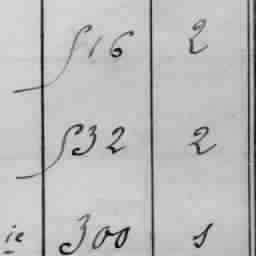 16 2
32 2
ie 300 s